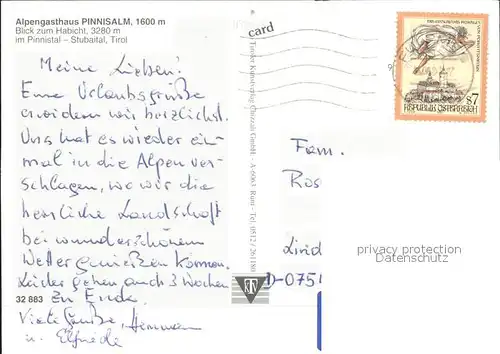 Alpengasthaus PINNISALM, 1600 m
Blick zum Habicht, 3280 m
im Pinnistal – Stubaital, Tirol
card
Meine Lieben!
Eure Urlaubsgrüße
erwidern wir herzlichst.
Uns hat es wieder ein-
mal in die Alpen ver-
schlagen, wo wir die
herrliche Landschaft
bei wunderschönem
Wetter genießen können.
Leider gehen auch 3 Wochen
zu Ende.
Viele Grüße, Hermann
u. Elfriede
32 883
Tiroler Kunstverlag Chizzali GmbH. - A-6063 Rum - Tel. 0512 / 261180
S 7
REPUBLIK ÖSTERREICH
Fam.
Ros
Lind
D-0751
privacy protection
Datenschutz